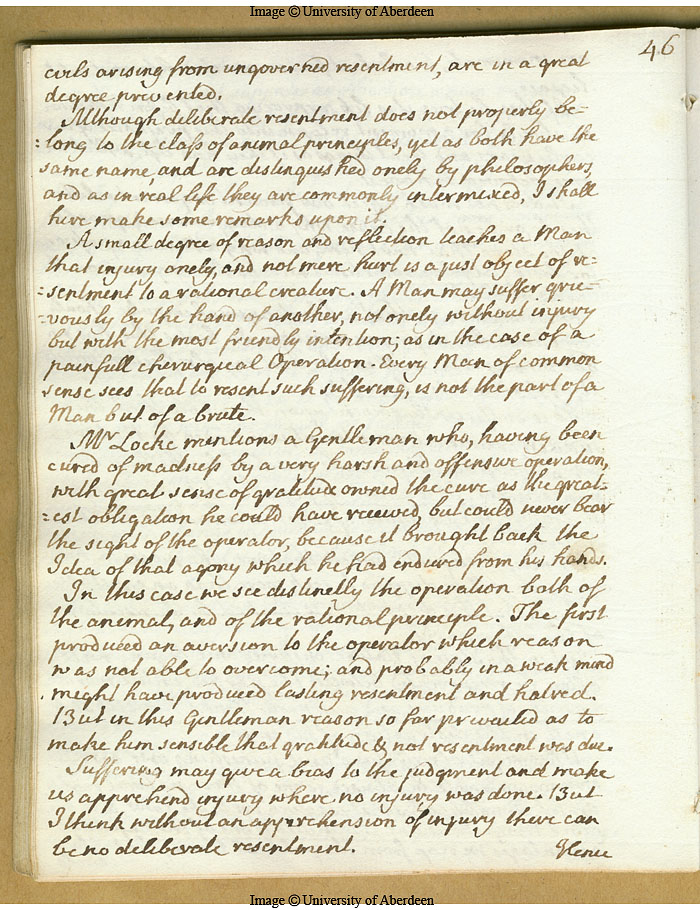 Image © University of Aberdeen
46
evils arising from ungoverned resentment, are in a great
degree prevented.
Although deliberate resentment does not properly be-
:long to the class of animal principles, yet as both have the
same name, and are distinguished onely by philosophers,
and as in real life they are commonly intermixed, I shall
here make some remarks upon it.
A small degree of reason and reflection teaches a Man
that injury onely, and not mere hurt is a just object of re:
:sentment to a rational creature. A Man may suffer grie-
:vously by the hand of another, not onely without injury
but with the most friendly intention; as in the case of a
painfull cherurgical Operation. Every Man of common
sense sees that to resent such suffering, is not the part of a
Man but of a brute.
Mr Locke mentions a Gentleman who, having been
cured of madness by a very harsh and offensive operation,
with great sense of gratitude owned the cure as the great-
:est obligation he could have received, but could never bear
the sight of the operator, because it brought back the
Idea of that agony which he had endured from his hands.
In this case we see distinctly the operation both of
the animal, and of the rational principle. The first
produced an aversion to the operator which reason
was not able to overcome; and probably in a weak mind
might have produced lasting resentment and hatred.
But in this Gentleman reason so far prevailed as to
make him sensible that gratitude & not resentment was due.
Suffering may give a bias to the judgment and make
us apprehend injury where no injury was done. But
I think without an apprehension of injury there can
be no deliberate resentment.
Hence
Image © University of Aberdeen